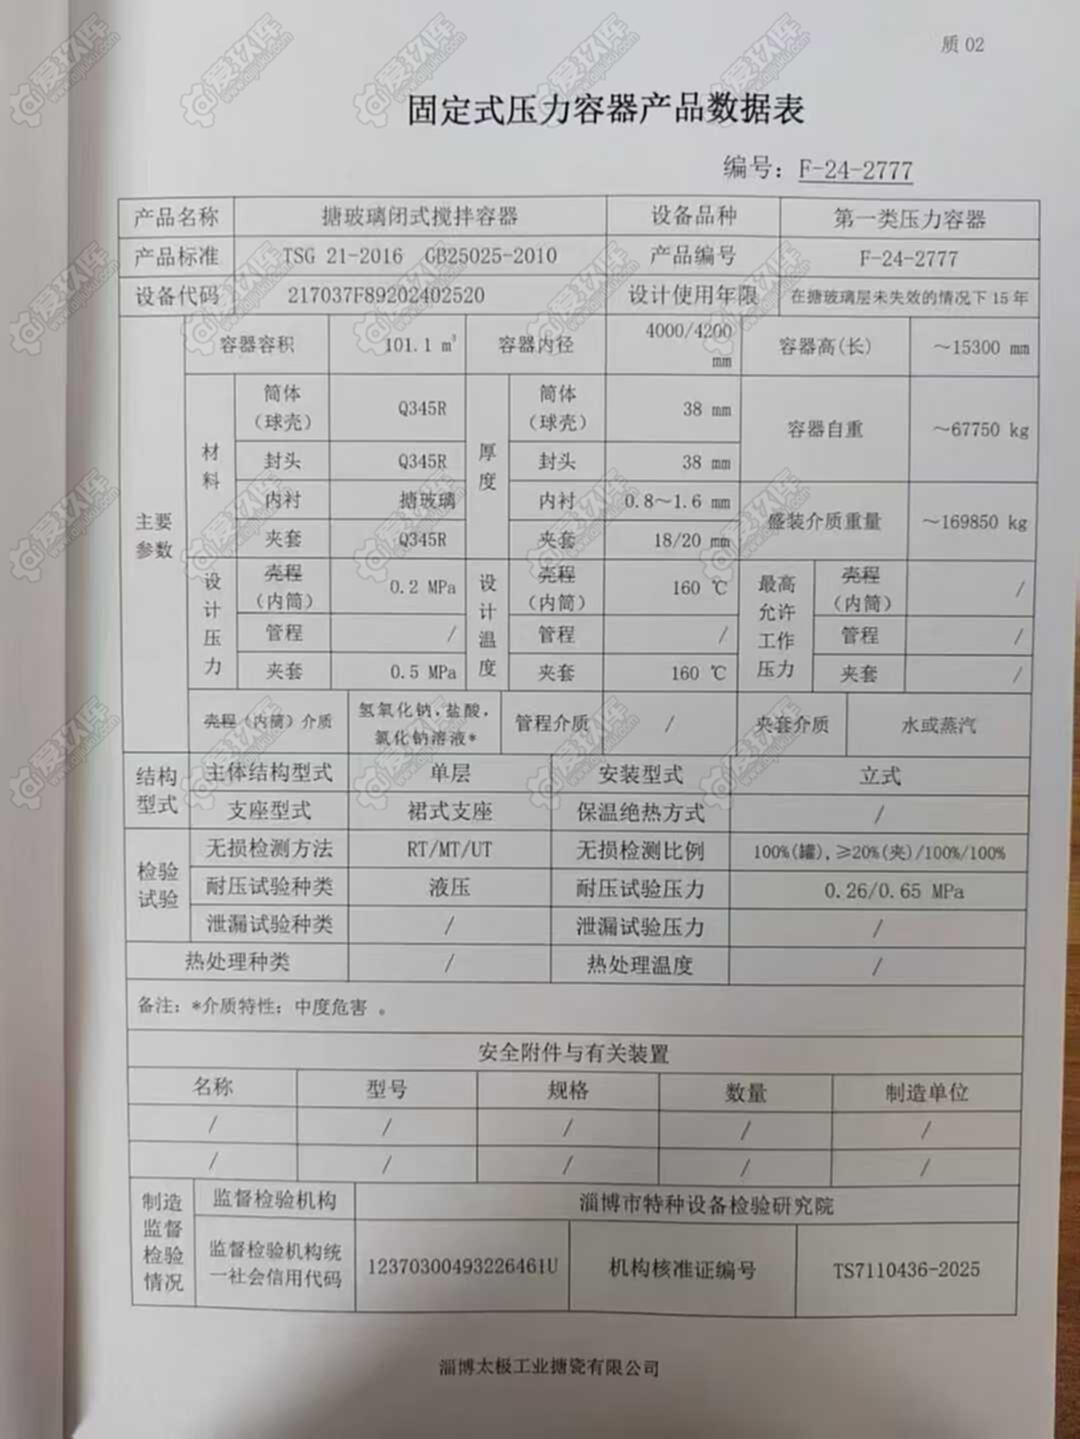 质 02
固定式压力容器产品数据表
编号: F-24-2777
产品名称 搪玻璃闭式搅拌容器 设备品种 第一类压力容器
产品标准 TSG 21-2016 GB25025-2010 产品编号 F-24-2777
设备代码 217037F89202402520 设计使用年限 在搪玻璃层未失效的情况下 15 年
主要参数
容器容积 101.1 m³ 容器内径 4000/4200 mm 容器高(长) ～15300 mm
材料 筒体(球壳) Q345R 厚度 筒体(球壳) 38 mm 容器自重 ～67750 kg
封头 Q345R 封头 38 mm
内衬 搪玻璃 内衬 0.8～1.6 mm 盛装介质重量 ～169850 kg
夹套 Q345R 夹套 18/20 mm
设计压力 壳程(内筒) 0.2 MPa 设计温度 壳程(内筒) 160 ℃ 最高允许工作压力 壳程(内筒) /
管程 / 管程 / 管程 /
夹套 0.5 MPa 夹套 160 ℃ 夹套 /
壳程(内筒)介质 氢氧化钠,盐酸,氯化钠溶液* 管程介质 / 夹套介质 水或蒸汽
结构型式 主体结构型式 单层 安装型式 立式
支座型式 裙式支座 保温绝热方式 /
检验试验 无损检测方法 RT/MT/UT 无损检测比例 100%(罐),≥20%(夹)/100%/100%
耐压试验种类 液压 耐压试验压力 0.26/0.65 MPa
泄漏试验种类 / 泄漏试验压力 /
热处理种类 / 热处理温度 /
备注: *介质特性: 中度危害 。
安全附件与有关装置
名称 型号 规格 数量 制造单位
/ / / / /
/ / / / /
制造监督检验情况 监督检验机构 淄博市特种设备检验研究院
监督检验机构统一社会信用代码 12370300493226461U 机构核准证编号 TS7110436-2025
淄博太极工业搪瓷有限公司
爱玖库
www.aijiuku.com